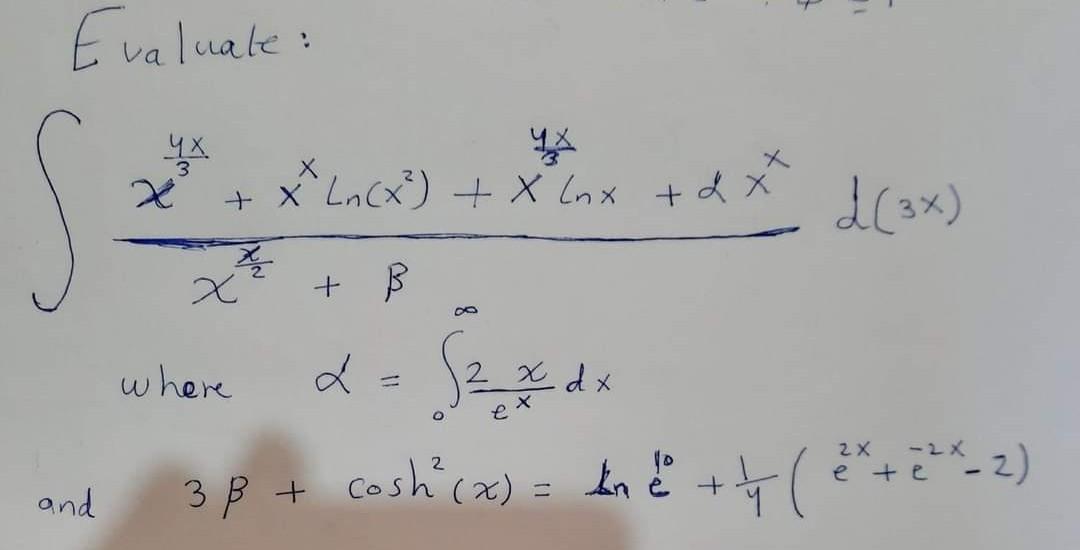 Evaluate:
∫ (x^(4x/3) + x^x Ln(x²) + x^(4x/3) lnx + α x^x) / (x^(x/2) + β) d(3x)
where α = ∫₀^∞ 2 x/e^x dx
and 3β + cosh²(x) = ln e^10 + 1/4 (e^(2x) + e^(-2x) - 2)